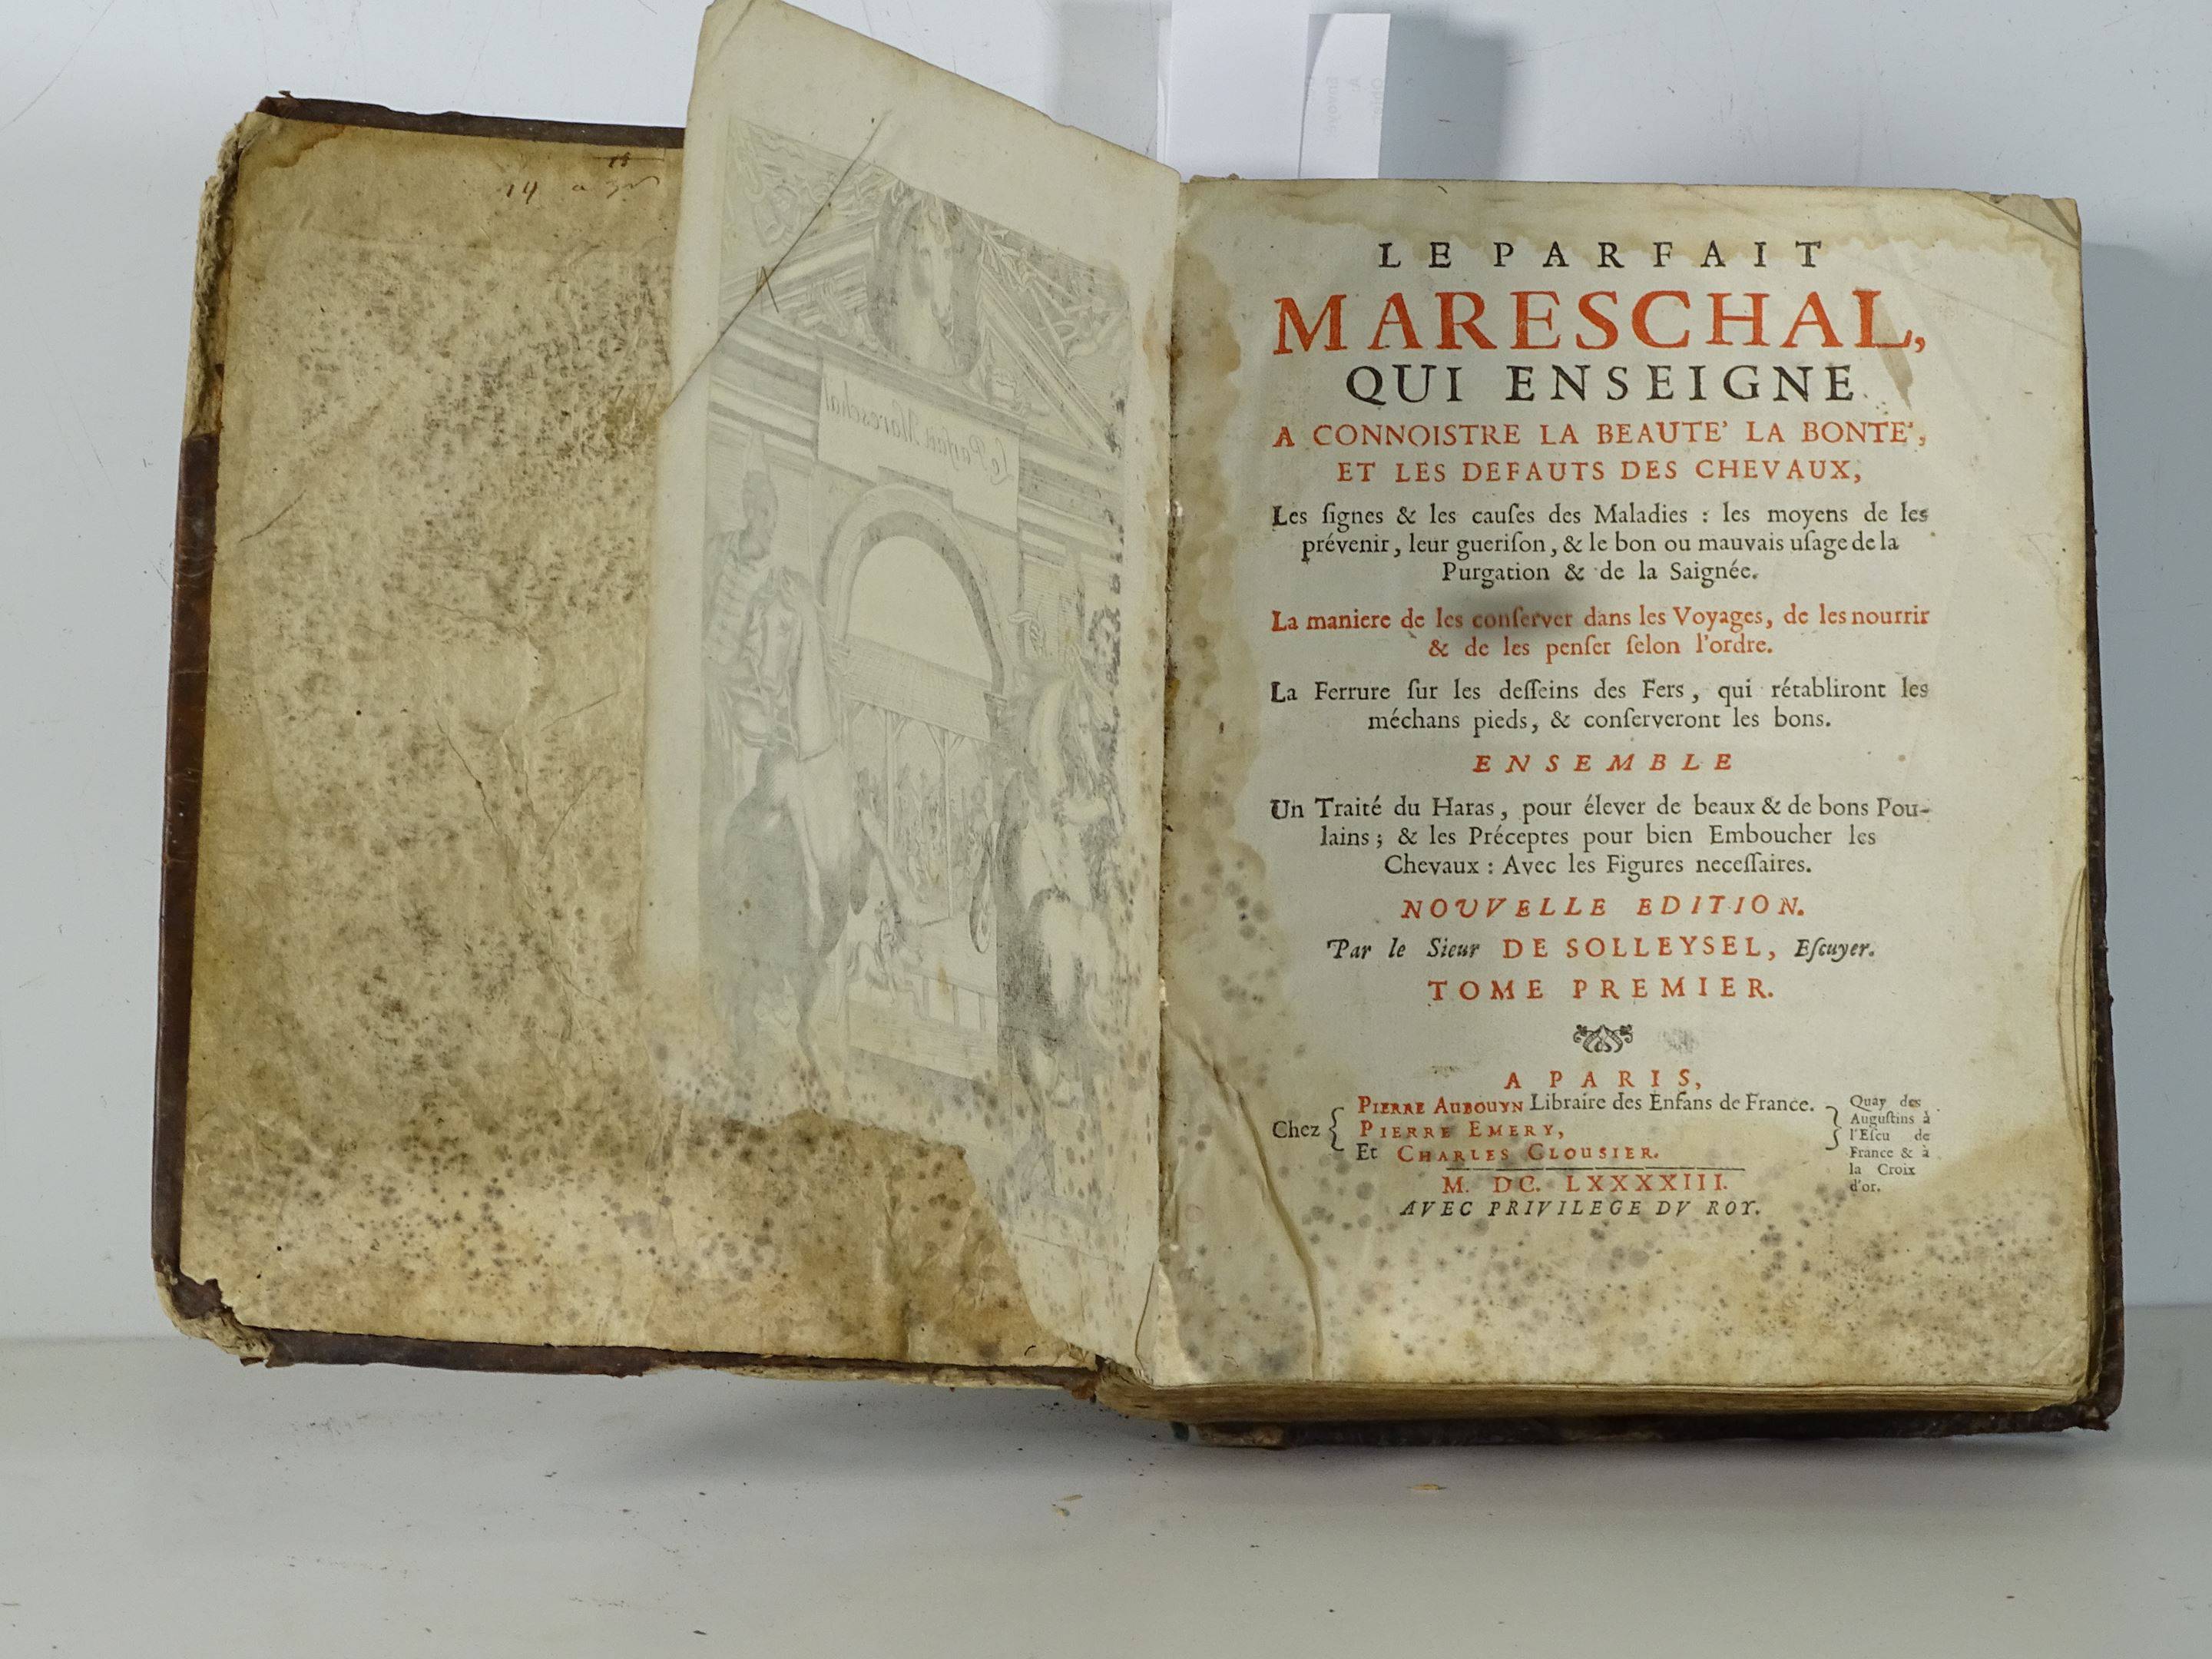 Le Parfait Mareschal
LE PARFAIT
MARESCHAL,
QUI ENSEIGNE
A CONNOISTRE LA BEAUTE' LA BONTE',
ET LES DEFAUTS DES CHEVAUX,
Les ſignes & les cauſes des Maladies : les moyens de les
prévenir, leur gueriſon, & le bon ou mauvais uſage de la
Purgation & de la Saignée.
La maniere de les conſerver dans les Voyages, de les nourrir
& de les penſer ſelon l'ordre.
La Ferrure ſur les deſſeins des Fers, qui rétabliront les
méchans pieds, & conſerveront les bons.
ENSEMBLE
Un Traité du Haras, pour élever de beaux & de bons Pou-
lains ; & les Préceptes pour bien Emboucher les
Chevaux : Avec les Figures neceſſaires.
NOUVELLE EDITION.
Par le Sieur DE SOLLEYSEL, Eſcuyer.
TOME PREMIER.
A PARIS,
Chez
PIERRE AUBOUYN Libraire des Enfans de France.
PIERRE EMERY,
Et CHARLES CLOUSIER.
Quay des
Auguſtins à
l'Eſcu de
France & à
la Croix
d'or.
M. DC. LXXXXIII.
AVEC PRIVILEGE DV ROY.